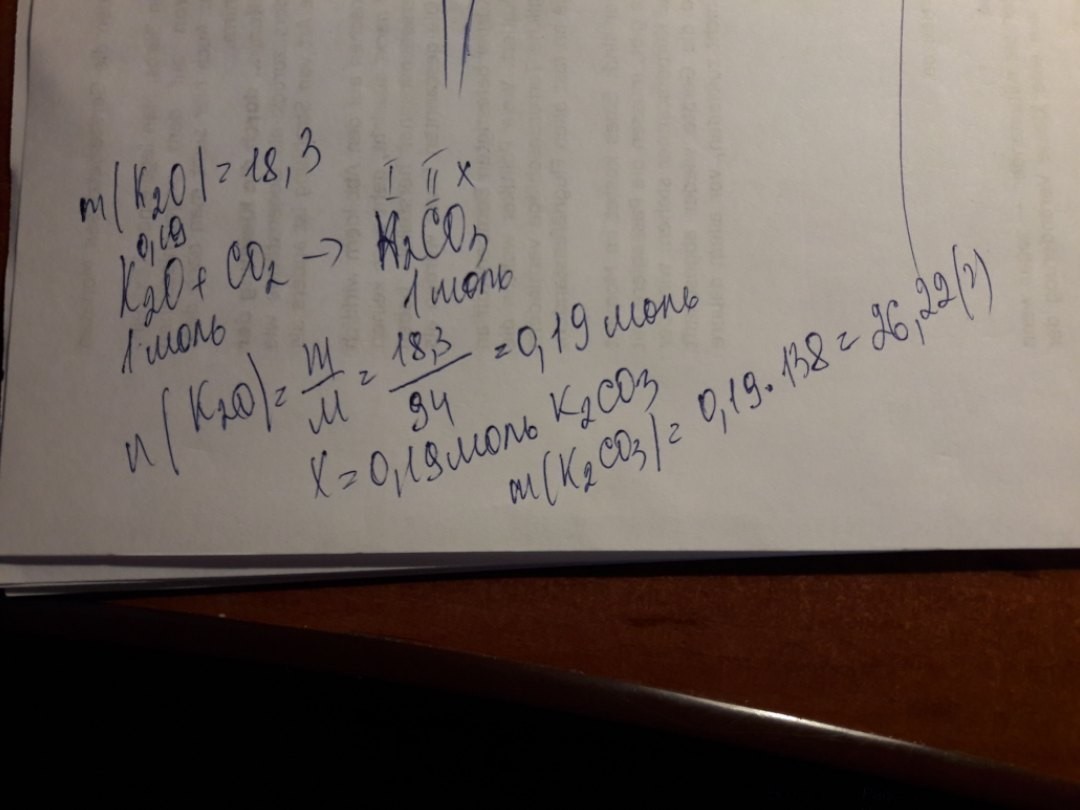 m(K₂O)=18,3
I II x
0,19
K₂O + CO₂ → K₂CO₃
1 моль 1 моль
n(K₂O)= m/M = 18,3/94 =0,19 моль
X=0,19 моль K₂CO₃
m(K₂CO₃)= 0,19·138= 26,22(г)